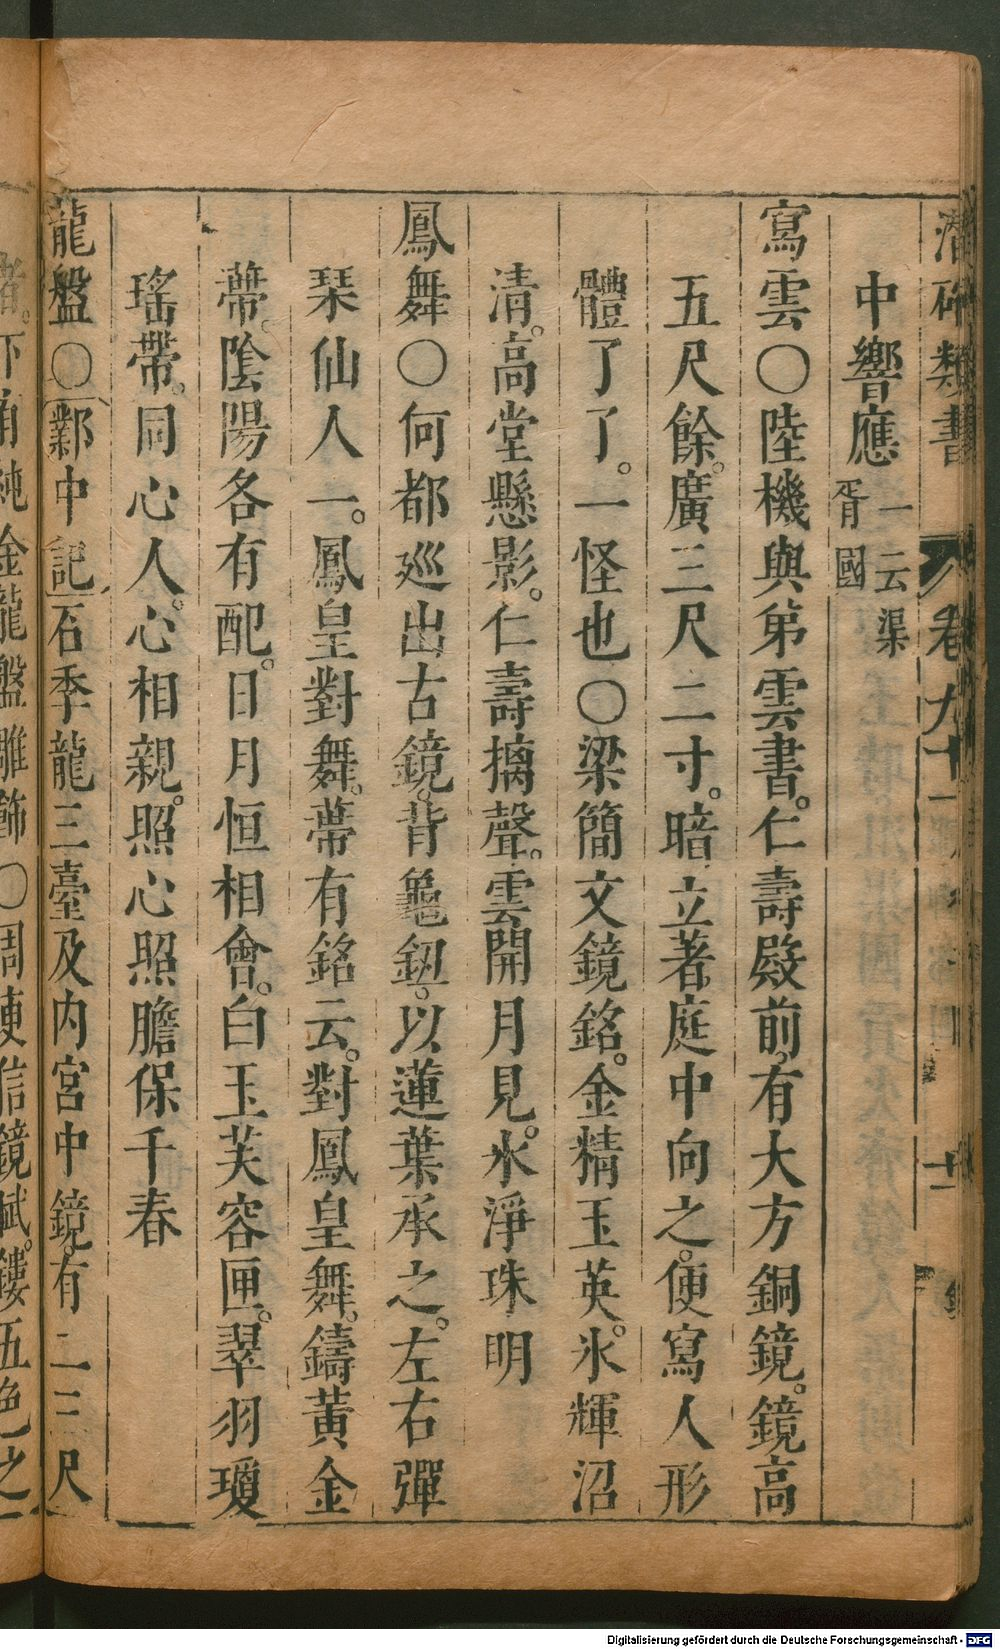 潛確類書 卷九十
中響應 一云渠胥國
寫雲〇陸機與第雲書。仁壽殿前。有大方銅鏡。鏡高
五尺餘。廣三尺二寸。暗立著庭中向之。便寫人形
體了了。一怪也〇梁簡文鏡銘。金精玉英。氷輝沼
清。高堂懸影。仁壽摛聲。雲開月見。水淨珠明
鳳舞〇何都巡出古鏡。背龜鈕。以蓮葉承之。左右彈
琹仙人一。鳳皇對舞。帶有銘云。對鳳皇舞。鑄黃金
蔕。陰陽各有配。日月恒相會。白玉芙容匣。翠羽瓊
瑤帶。同心人。心相親。照心照膽保千春
龍盤〇鄴中記石季龍三臺及内宮中鏡。有二三尺
者。下有純金龍盤雕飾〇周庾信鏡賦。鏤五色之
Digitalisierung gefördert durch die Deutsche Forschungsgemeinschaft - DFG